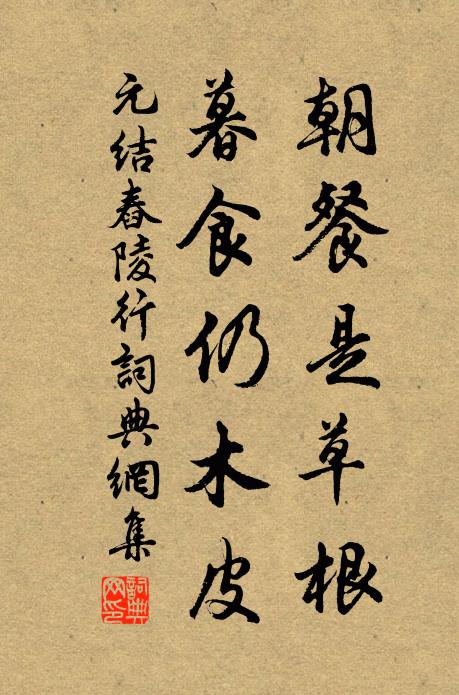 朝餐是草根
暮食仍木皮
元结舂陵行詞典網集
詞典網印